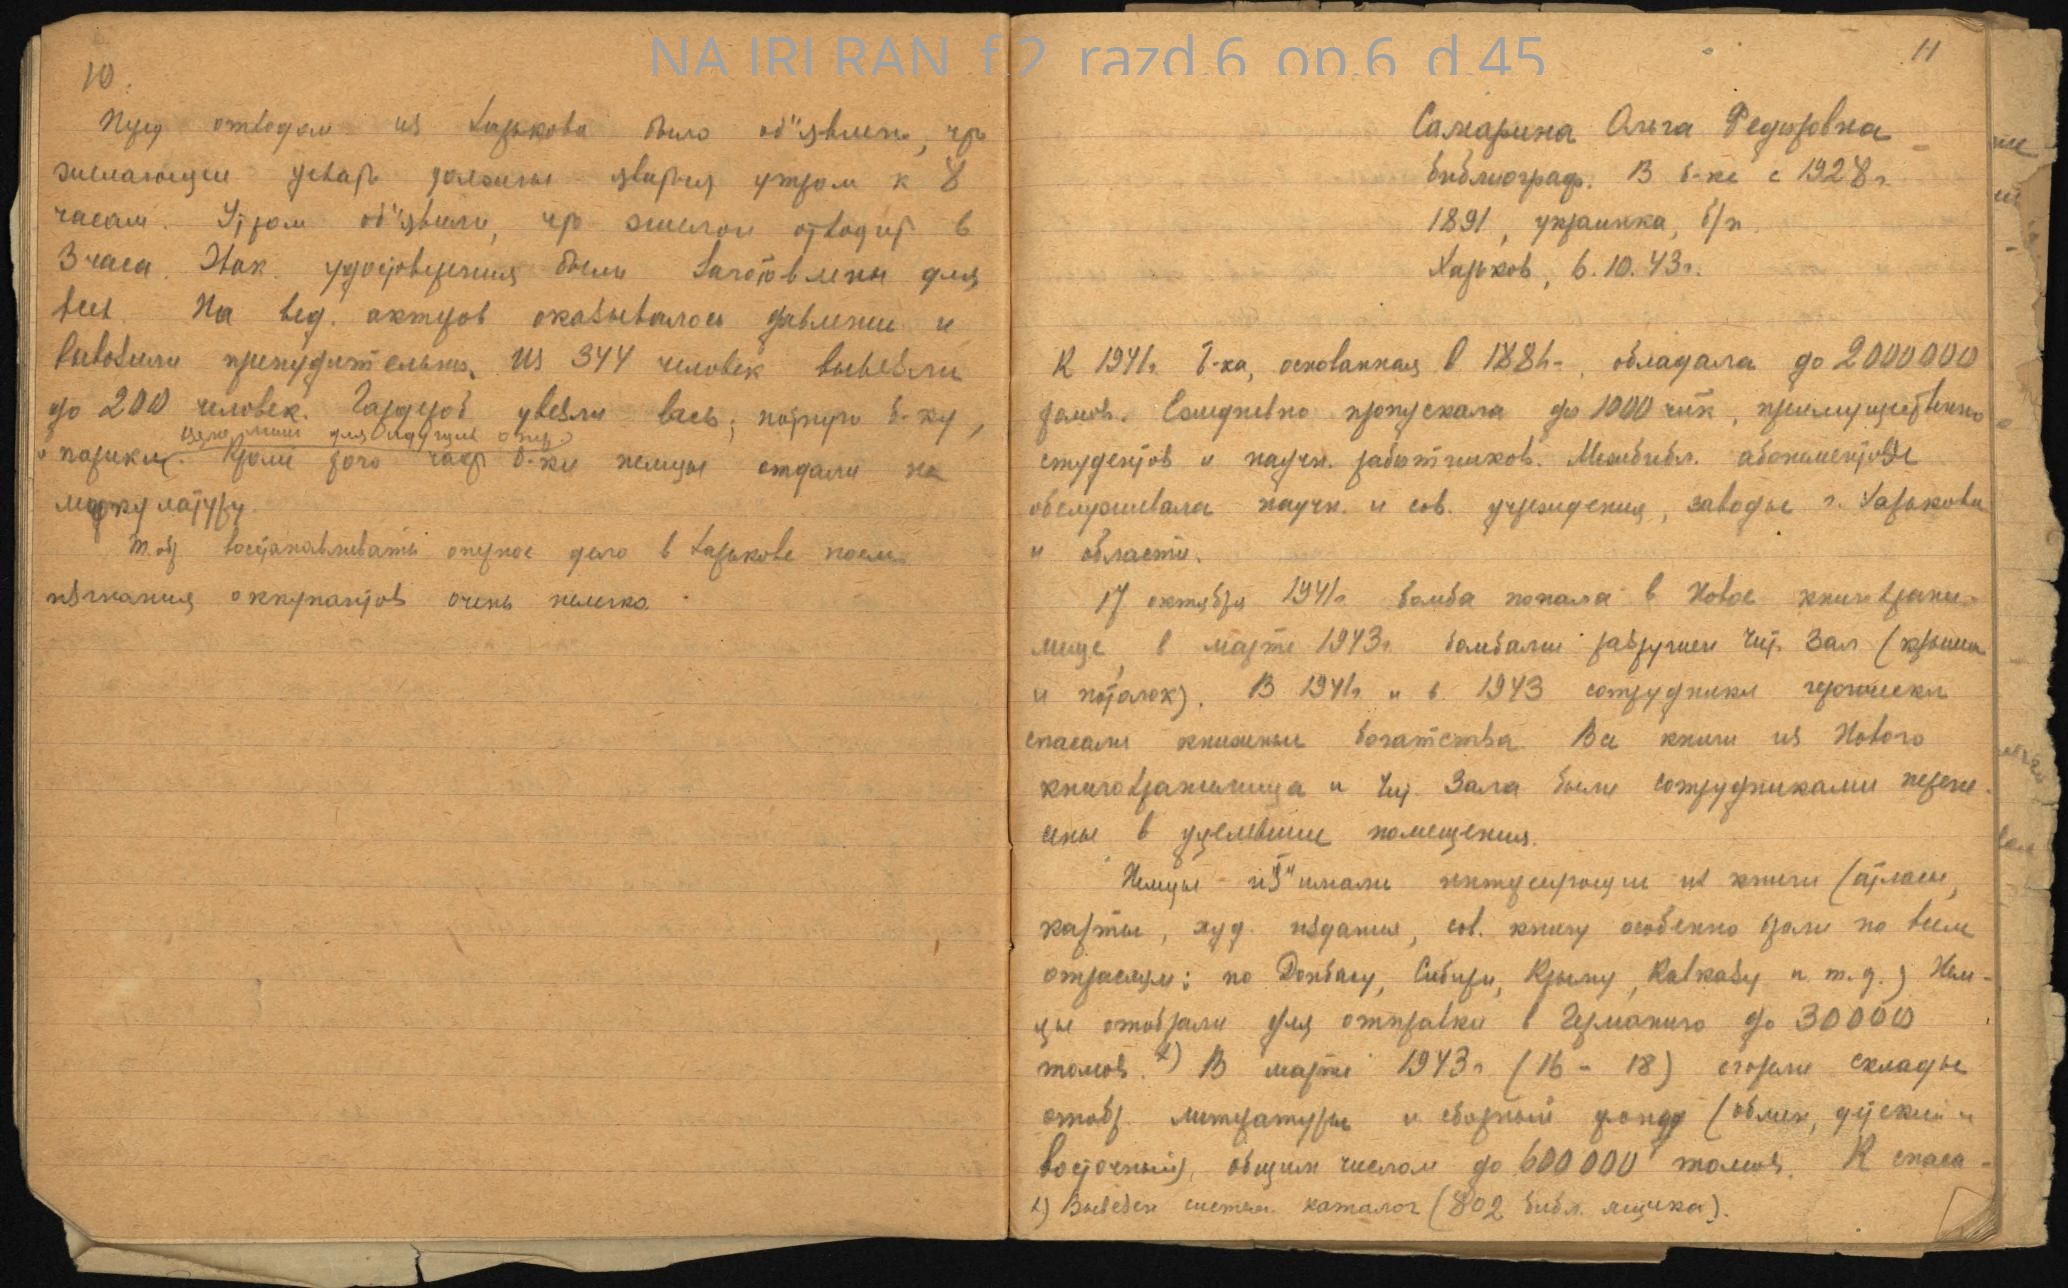 NA IRI RAN f.2 razd.6 op.6 d.45
10.
Перед отходом из Харькова было об"явлено, что
желающие уехать должны явиться утром к 8
часам. Утром об"явили, что эшелон отходит в
3 часа. Эвак. удостоверения были заготовлены для
всех. На вед. актеров оказывалось давление и
вывозили принудительно. Из 344 человек вывезли
до 200 человек. Гардероб увезли весь; нотную б-ку,
для идущих опер
и парики. Кроме того часть б-ки немцы отдали на
макулатуру.
Т. обр. восстанавливать оперное дело в Харькове после
изгнания оккупантов очень нелегко.
11
Самарина Ольга Федоровна
библиограф. В б-ке с 1928 г.
1891, украинка, б/п.
Харьков, 6.10.43 г.
К 1941 г. б-ка, основанная в 1886 г., обладала до 2000000
томов. Ежедневно пропускала до 1000 чит., преимущественно
студентов и научн. работников. Межбибл. абонементом
обслуживала научн. и сов. учреждения, заводы г. Харькова
и области.
17 октября 1941 г. бомба попала в Новое книгохрани-
лище, в марте 1943 г. бомбами разрушен Чит. Зал (крыша
и потолок). В 1941 г. и в 1943 сотрудники героически
спасали книжные богатства. Все книги из Нового
книгохранилища и Чит. Зала были сотрудниками перене-
сены в уцелевшие помещения.
Немцы из"имали интересующие их книги (атласы,
карты, худ. издания, сов. книгу особенно брали по всем
отраслям: по Донбассу, Сибири, Крыму, Кавказу и т.д.) Нем-
цы отобрали для отправки в Германию до 30000
томов. 1) В марте 1943 г. (16 - 18) сгорели склады
отобр. литературы и сборный фонд (обмен, детский и
восточный), общим числом до 600000 томов. К спаса-
1) Вывезен систем. каталог (802 библ. ящика).